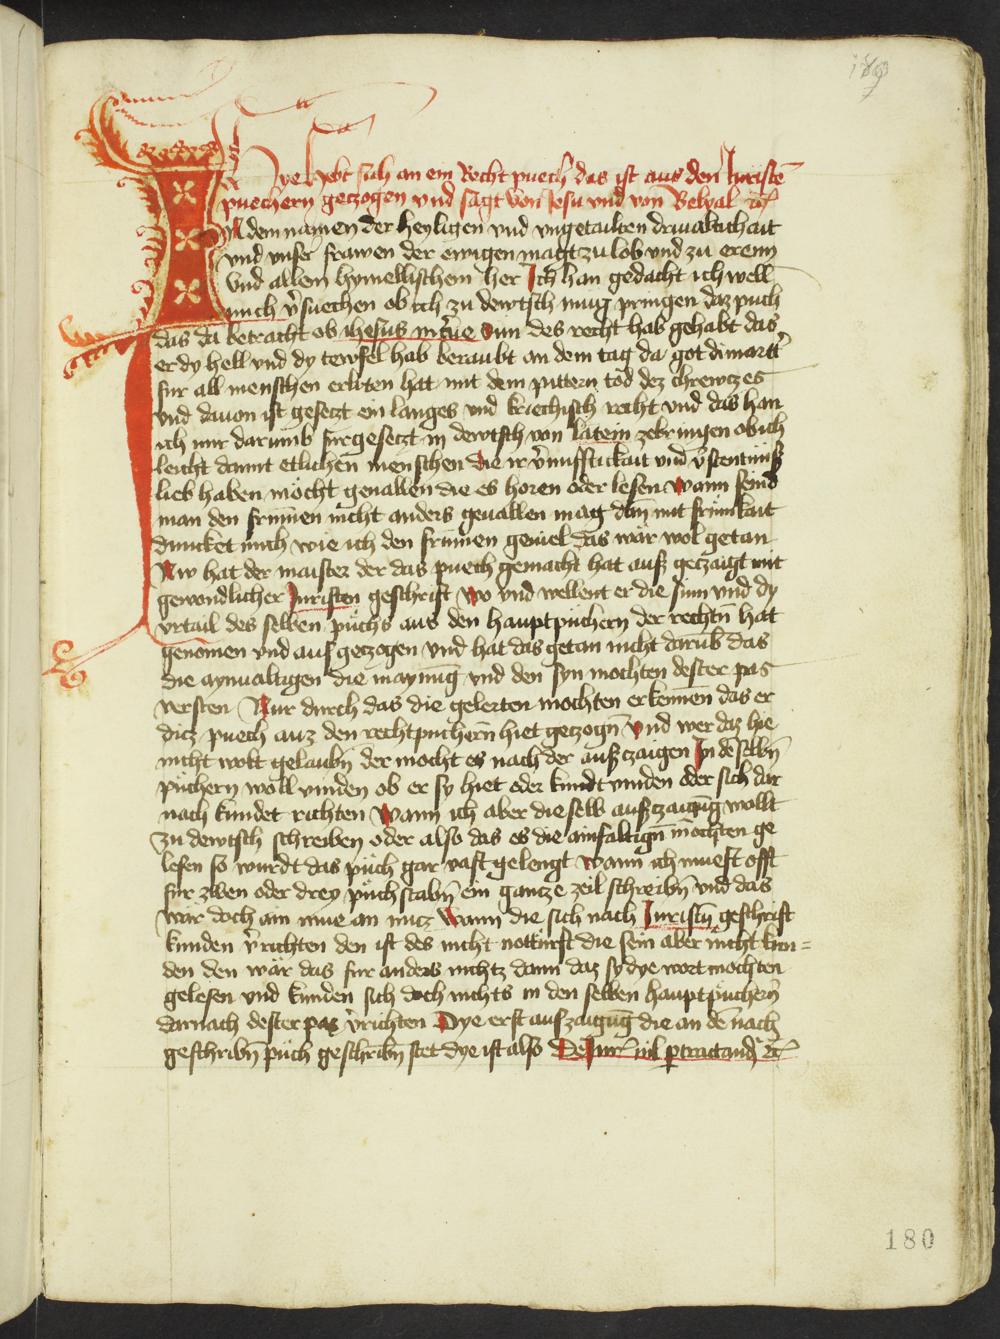 189
Hye hebt sich an ein Recht puech das ist aus den Juristē
puechern geczogen vnd sagt von Jesu vnd von Belyal ꝛc̄
In dem namen der heyligen vnd vngetailten driualtichait
vnd vnser frawen der ewigen magt zu lob vnd zu erenn
Vnd allem hymellischem her Ich han gedacht ich well
mich v̄suechen ob ich zu dewtsch mug pringen daz puch
das da betracht ob ihesus des recht hab gehabt das
er dy hell vnd dy tewfel hab beraubt an dem tag da got di martt̄
fur all menschen erliten hat mit dem pittern tod dez chrewczes
vnd dauon ist geseczt ein langes vnd kriechisch recht vnd das han
ich mir darumb furgeseczt in dewtsch von latein zebringen ob ich
leicht damit etlichen menschen die ir v̄nufftickait vnd v̄stentnuß
lieb haben mocht geuallen die es horen oder lesen wann seind
man den frumen nicht anders geuallen mag dan mit frumkait
duncket mich wie ich den frumen geuiel das wär wol getan
Nw hat der maister der das puech gemacht hat auß geczaigt mit
gewondlicher Juristen geschrift wo vnd wellent er die sinn vnd dy
vrtail des selben puchs aus den hauptpuchern der rechtn̄ hat
genomen vnd aus geczogen vnd hat das getan nicht darūb das
die aynualtigen die maynūg vnd den syn mochten dester pas
versten Nur durch das die gelerten mochten erkennen das er
dicz puech auz den rechtpuchern hiet geczogn̄ vnd wer daz hie
nicht wolt gelaubn̄ der mocht es nach der auß zaigen In de selbn̄
puchern woll vinden ob er sy hiet oder kundt vinden oder sich dar
nach kundet richten wann ich aber die selb außczaigūg wollt
zu dewtsch schreiben oder also das es die ainfaltign̄ mochten ge
lesen so wurdt das puch gar vast gelengt wann ich muest offt
fur zwen oder drey puchstabn̄ ein gantze zeil schreibn̄ vnd das
war doch ain mue an nucz wann die sich nach Juristn̄ geschrift
kunden v̄richten den ist des nicht notturft die sein aber nicht kun=
den den wär das fur anders nichtz dann daz sy dye wort mochten
gelesen vnd kunden sich doch nichts in den selben hauptpuchern̄
darnach dester pas v̄richten Dye erst auszaigūg die an de nach
geschribn̄ puch geschribn̄ stet dye ist also De Jur̄ ꝛc̄
180